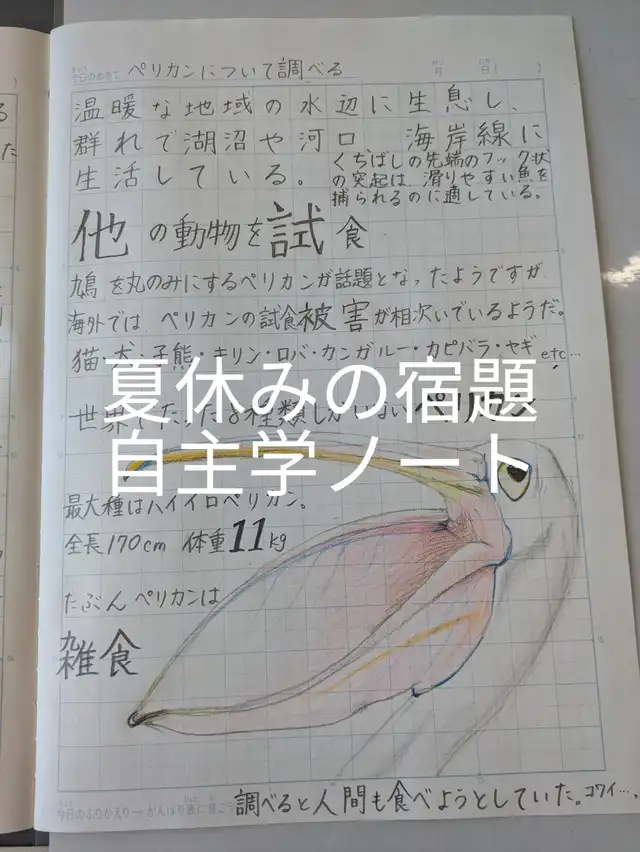 今日のめあて ペリカンについて調べる 月 日( )
温暖な地域の水辺に生息し、
群れで湖沼や河口 海岸線に
生活している。
くちばしの先端のフック状
の突起は、滑りやすい魚を
捕られるのに適している。
他の動物を試食
鳩を丸のみにするペリカンが話題となったようですが
海外では ペリカンの試食被害が相次いでいるようだ。
猫・犬・子熊・キリン・ロバ・カンガルー・カピバラ・ヤギ etc…
夏休みの宿題
世界でたった8種類しかいない
自主学ノート
最大種はハイイロペリカン。
全長170cm 体重11kg
たぶん ペリカンは
雑食
今日のふりかえり→
調べると人間も食べようとしていた。コワイ…、